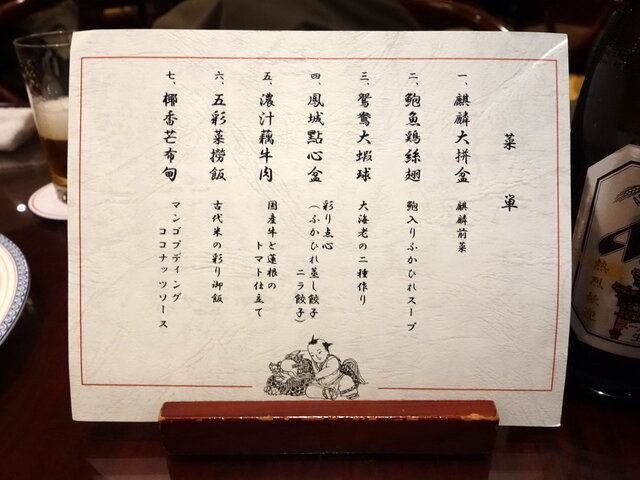 菜単
一、麒麟大拼盆 麒麟前菜
二、鮑魚鶏絲翅 鮑入りふかひれスープ
三、鴛鴦大蝦球 大海老の二種作り
四、鳳城點心盒 彩り点心
(ふかひれ蒸し餃子
ニラ餃子)
五、濃汁藕牛肉 国産牛と蓮根の
トマト仕立て
六、五彩菜撈飯 古代米の彩り御飯
七、椰香芒布甸 マンゴプディング
ココナッツソース
熱烈歓迎